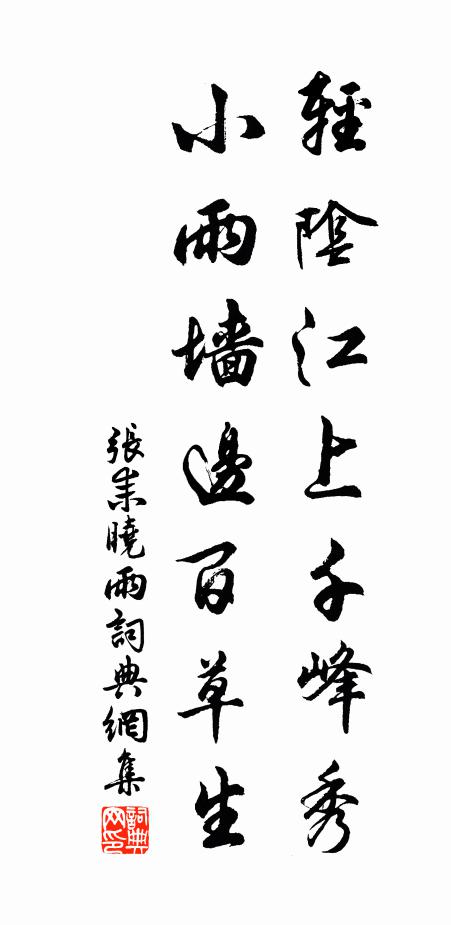 輕陰江上千峰秀
小雨墙邊百草生
張耒曉雨詞典網集
詞典网印